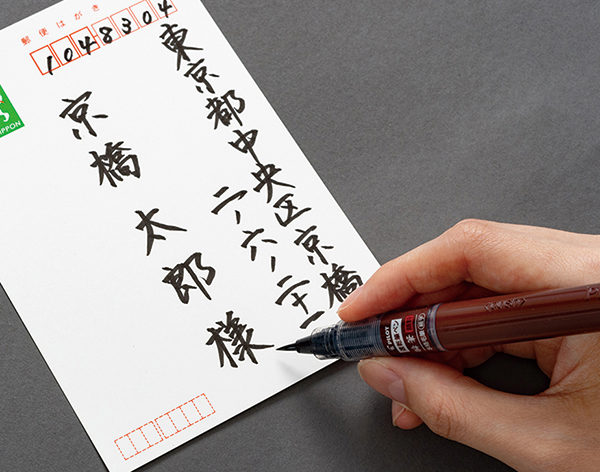 郵便はがき
1048304
東京都中央区京橋
二、六、二十一
京橋太郎様
NIPPON
PILOT
筆ペン